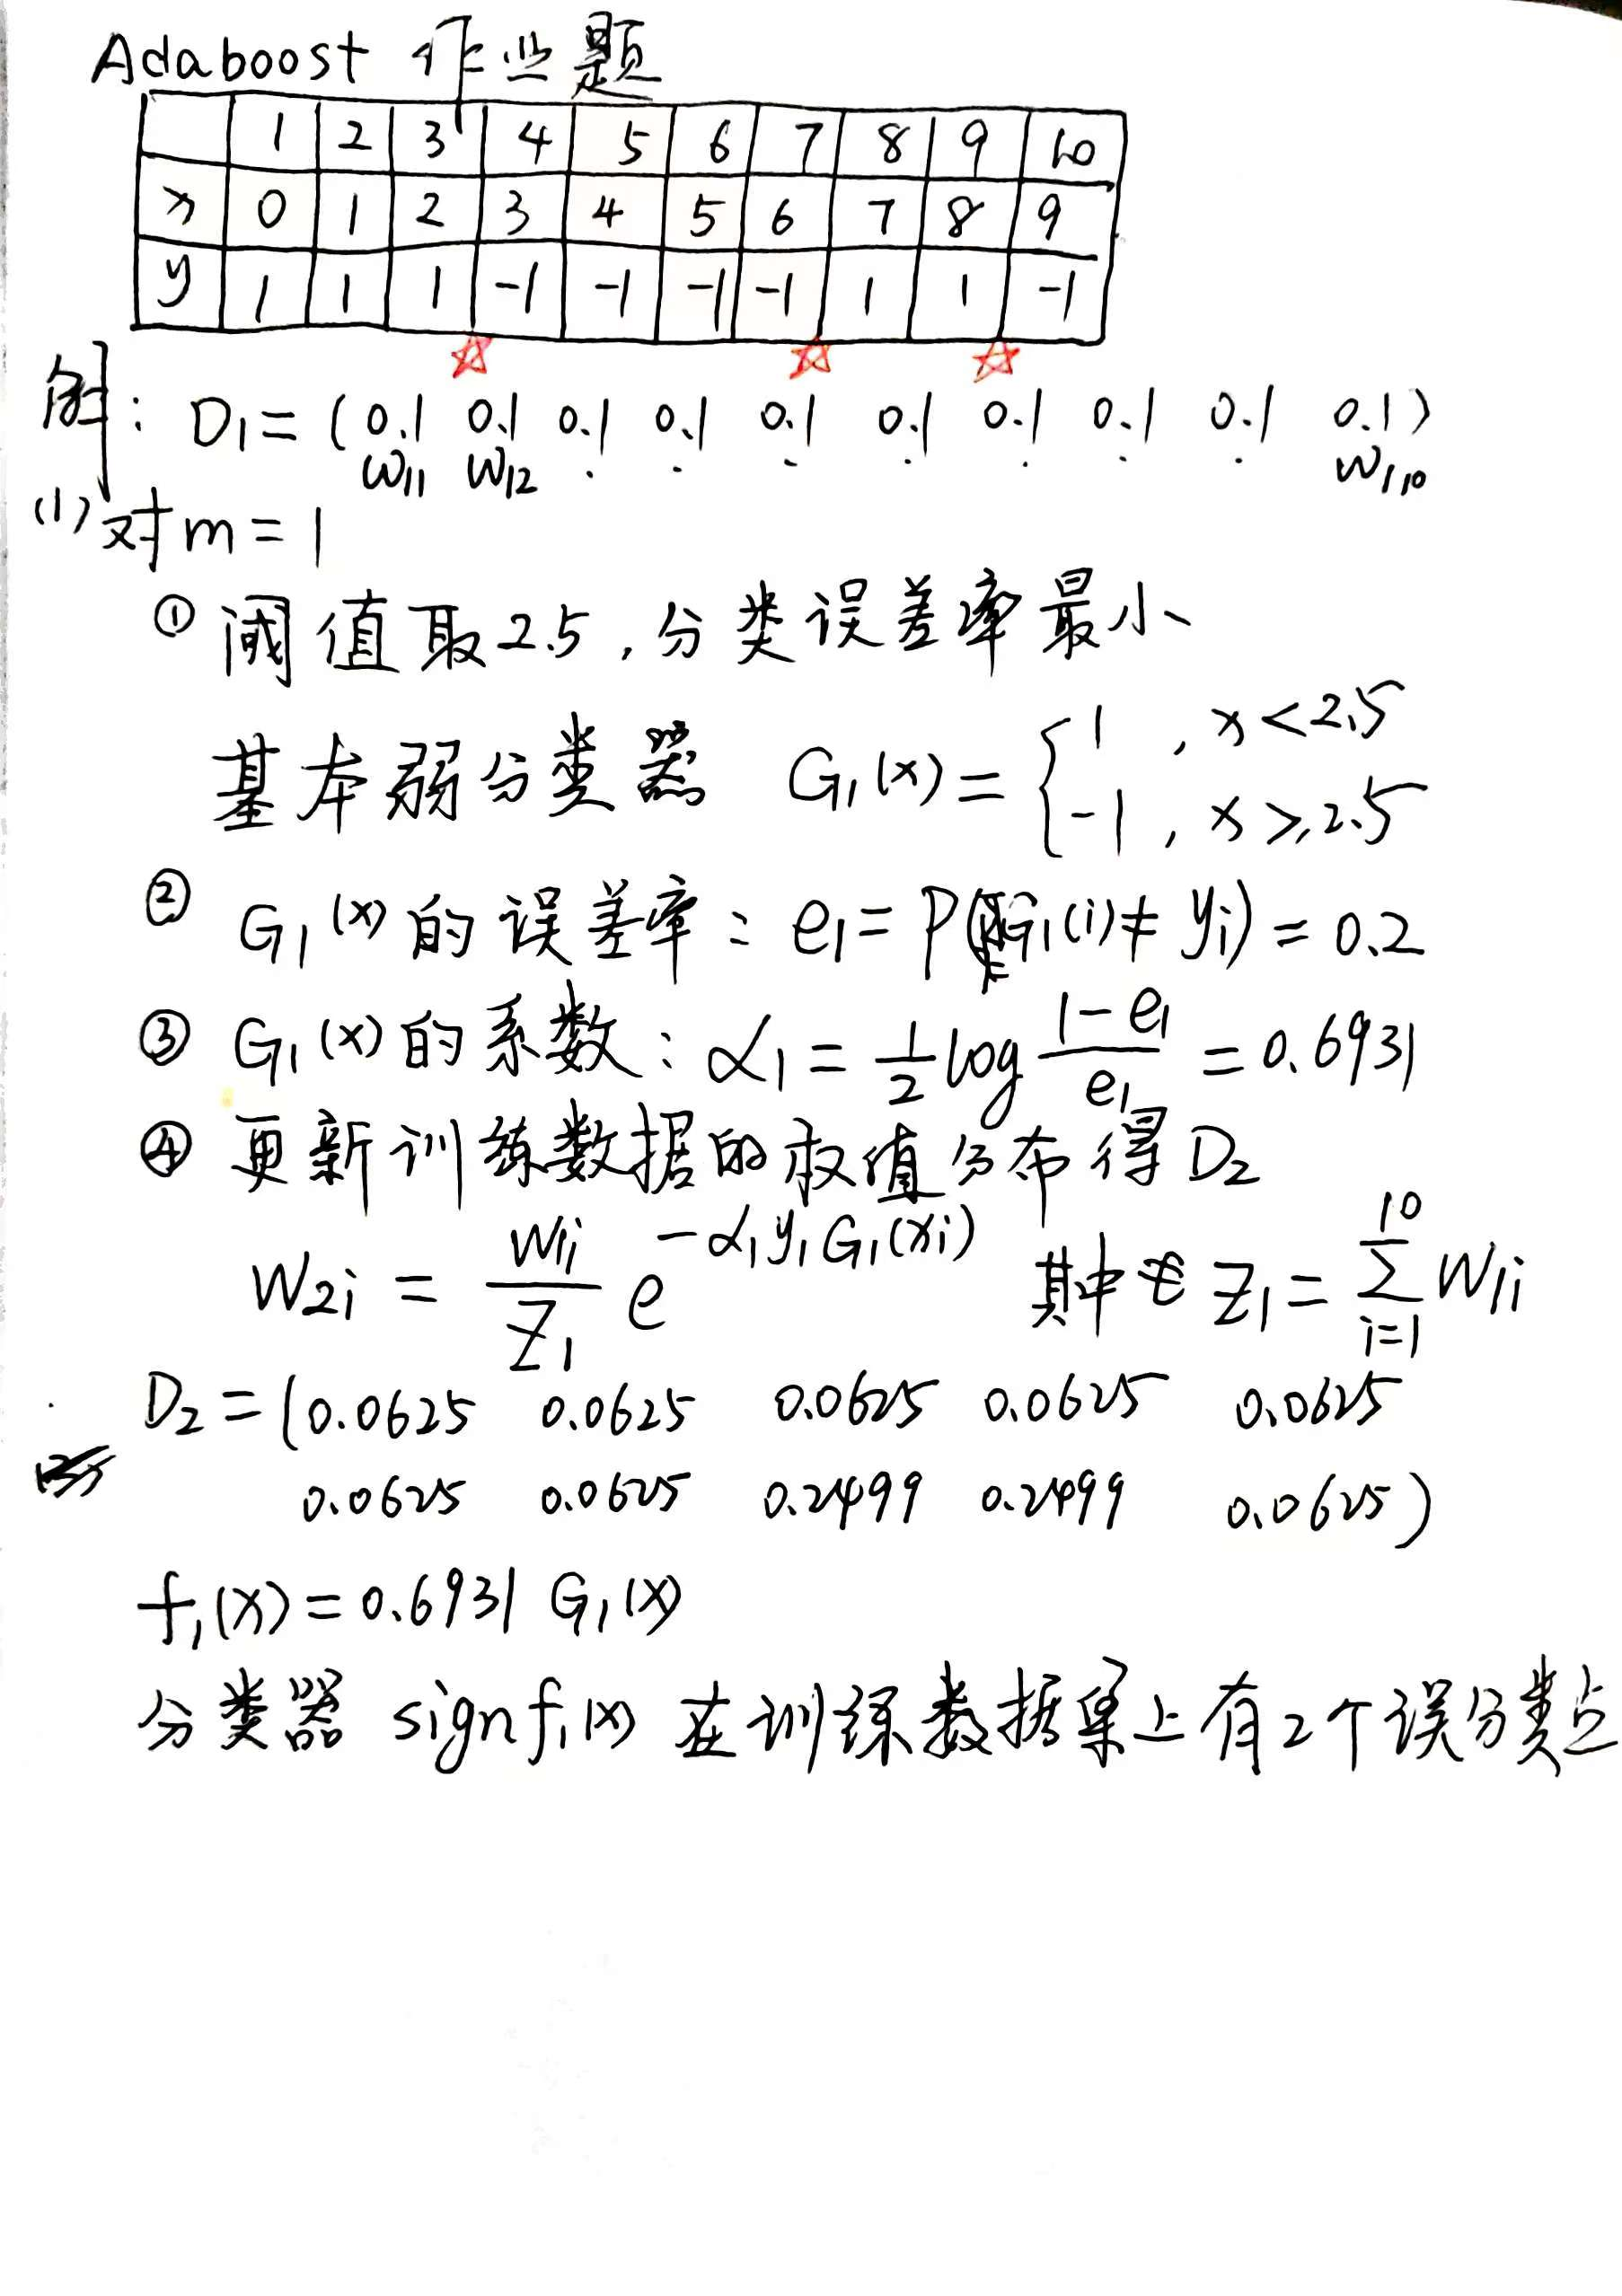 Adaboost 作业题
1 2 3 4 5 6 7 8 9 10
x 0 1 2 3 4 5 6 7 8 9
y 1 1 1 -1 -1 -1 -1 1 1 -1
解: D₁ = (0.1 0.1 0.1 0.1 0.1 0.1 0.1 0.1 0.1 0.1)
w₁₁ w₁₂ . . . . . . . w₁,₁₀
(1) 对 m = 1
① 阈值取2.5,分类误差率最小
基本弱分类器 G₁(x) = { 1 , x < 2.5
-1 , x ≥ 2.5
② G₁(x) 的误差率: e₁ = P(G₁(i) ≠ yi) = 0.2
③ G₁(x) 的系数: α₁ = 1/2 log (1-e₁)/e₁ = 0.6931
④ 更新训练数据的权值分布得 D₂
W₂i = W₁i/Z₁ e^(-α₁y₁G₁(xi)) 其中 Z₁ = Σ_{i=1}^{10} W₁i
D₂ = (0.0625 0.0625 0.0625 0.0625 0.0625
0.0625 0.0625 0.2499 0.2499 0.0625)
f₁(x) = 0.6931 G₁(x)
分类器 sign f₁(x) 在训练数据集上有2个误分类点